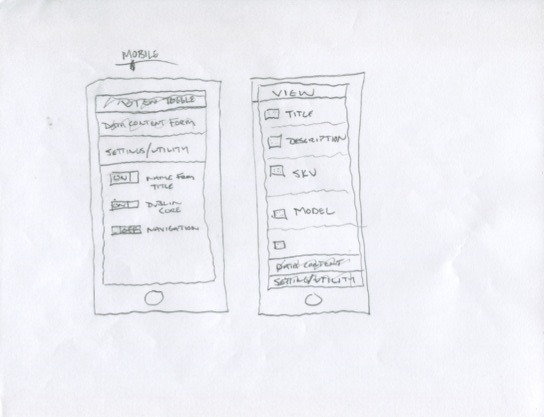 MOBILE
TOGGLE
DATA CONTENT FORM
SETTINGS/UTILITY
ON NAME FORM
TITLE
ON DUBLIN
CORE
OFF NAVIGATION
VIEW
TITLE
DESCRIPTION
SKU
MODEL
DATA CONTENT
SETTING/UTILITY